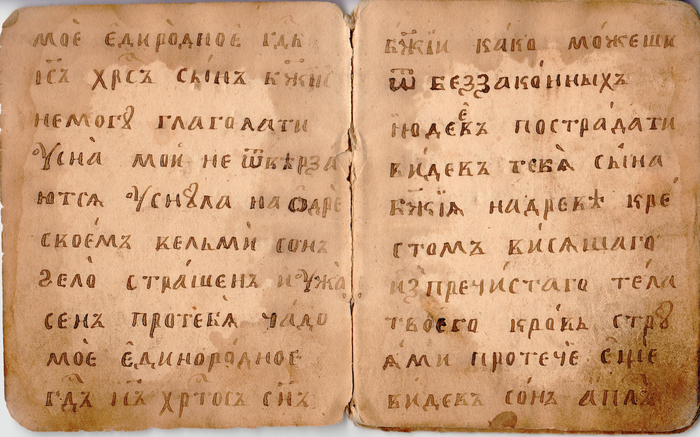 моѐ є҆диро́дное гдⷭ҇ь
і҆с҃ъ хрⷭ҇съ сы́нъ бж҃їи
немогꙋ̀ глаголати
ᲂу҆сна̀ мой не ѿверза
ются ᲂу҆снꙋ́ла на ѻ҆дрѐ
ское́мъ вельмѝ сонъ
ѕело̀ стра́шенъ и ᲂу҆жа
сенъ протебя̀ ча́до
моѐ є҆диноро́дное
гдⷭ҇ь і҆с҃ъ хрⷭ҇тосъ сн҃ъ
бж҃їи како мо́жеши
ѿ беззако́нныхъ
июдеевъ постра́дати
ви́девъ тебя̀ сы́на
бж҃їѧ надревѣ̀ кре
стомъ вися́щаго
изпречи́стаго те́ла
твоего кровь стрꙋ
я́ми протече́ є҆ще
ви́девъ со́нъ апл҃ъ